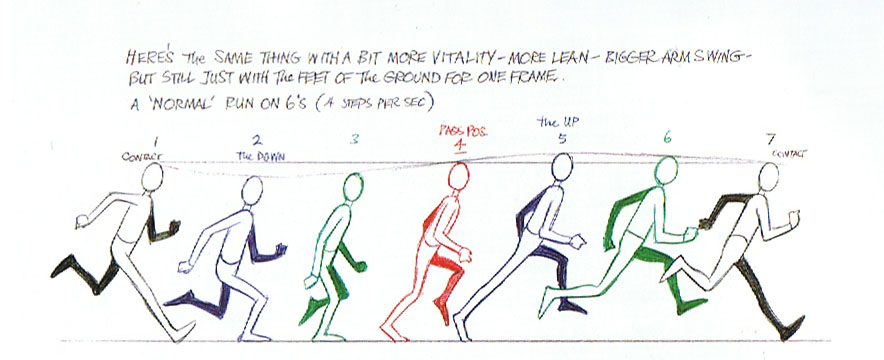 HERE'S THE SAME THING WITH A BIT MORE VITALITY - MORE LEAN - BIGGER ARM SWING -
BUT STILL JUST WITH THE FEET OF THE GROUND FOR ONE FRAME.
A 'NORMAL' RUN ON 6'S (4 STEPS PER SEC)
1 2 3 PASS POS. 4 the UP 5 6 7
CONTACT the DOWN CONTACT